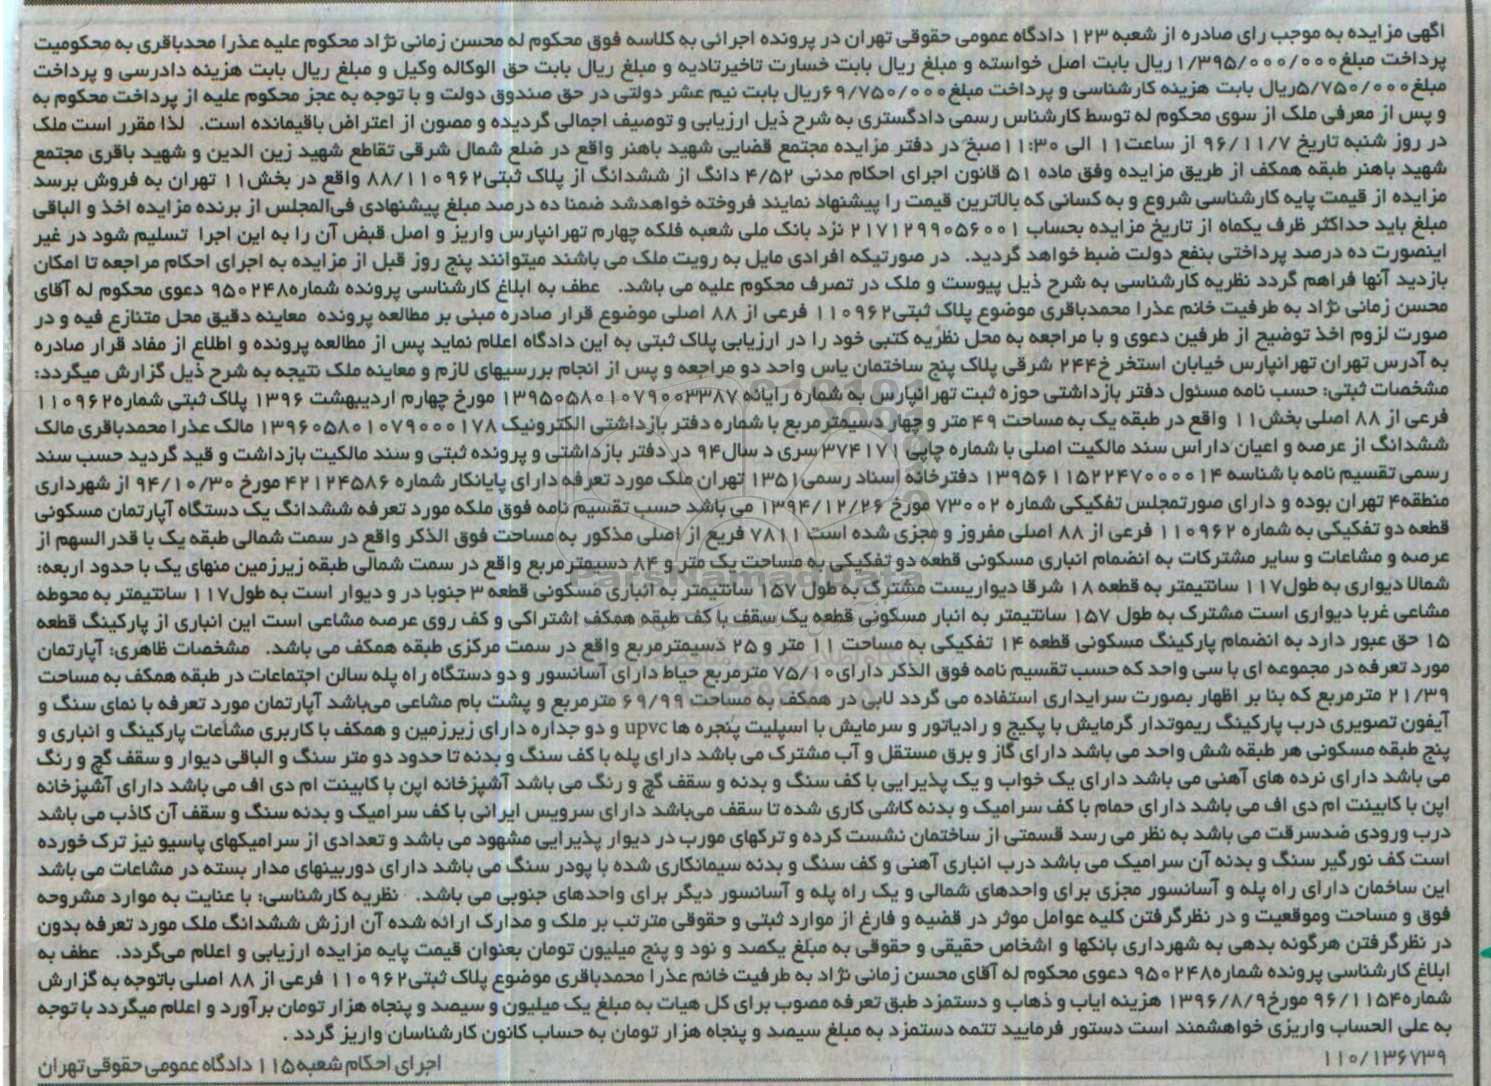 آگهی مزایده به موجب رای صادره از شعبه ۱۲۳ دادگاه عمومی حقوقی تهران در پرونده اجرائی به کلاسه فوق محکوم له محسن زمانی نژاد محکوم علیه عذرا محدباقری به محکومیت
پرداخت مبلغ ۱/۳۹۵/۰۰۰/۰۰۰ ریال بابت اصل خواسته و مبلغ ریال بابت خسارت تاخیرتادیه و مبلغ ریال بابت حق الوکاله وکیل و مبلغ ریال بابت هزینه دادرسی و پرداخت
مبلغ ۵/۷۵۰/۰۰۰ریال بابت هزینه کارشناسی و پرداخت مبلغ ۶۹/۷۵۰/۰۰۰ریال بابت نیم عشر دولتی در حق صندوق دولت و با توجه به عجز محکوم علیه از پرداخت محکوم به
و پس از معرفی ملک از سوی محکوم له توسط کارشناس رسمی دادگستری به شرح ذیل ارزیابی و توصیف اجمالی گردیده و مصون از اعتراض باقیمانده است. لذا مقرر است ملک
در روز شنبه تاریخ ۹۶/۱۱/۷ از ساعت۱۱ الی ۱۱:۳۰صبح در دفتر مزایده مجتمع قضایی شهید باهنر واقع در ضلع شمال شرقی تقاطع شهید زین الدین و شهید باقری مجتمع
شهید باهنر طبقه همکف از طریق مزایده وفق ماده ۵۱ قانون اجرای احکام مدنی ۴/۵۲ دانگ از ششدانگ از پلاک ثبتی۸۸/۱۱۰۹۶۲ واقع در بخش۱۱ تهران به فروش برسد
مزایده از قیمت پایه کارشناسی شروع و به کسانی که بالاترین قیمت را پیشنهاد نمایند فروخته خواهدشد ضمنا ده درصد مبلغ پیشنهادی فی‌المجلس از برنده مزایده اخذ و الباقی
مبلغ باید حداکثر ظرف یکماه از تاریخ مزایده بحساب ۲۱۷۱۲۹۹۰۵۶۰۰۱ نزد بانک ملی شعبه فلکه چهارم تهرانپارس واریز و اصل قبض آن را به این اجرا تسلیم شود در غیر
اینصورت ده درصد پرداختی بنفع دولت ضبط خواهد گردید. در صورتیکه افرادی مایل به رویت ملک می باشند میتوانند پنج روز قبل از مزایده به اجرای احکام مراجعه تا امکان
بازدید آنها فراهم گردد نظریه کارشناسی به شرح ذیل پیوست و ملک در تصرف محکوم علیه می باشد. عطف به ابلاغ کارشناسی پرونده شماره۹۵۰۲۴۸ دعوی محکوم له آقای
محسن زمانی نژاد به طرفیت خانم عذرا محمدباقری موضوع پلاک ثبتی۱۱۰۹۶۲ فرعی از ۸۸ اصلی موضوع قرار صادره مبنی بر مطالعه پرونده معاینه دقیق محل متنازع فیه و در
صورت لزوم اخذ توضیح از طرفین دعوی و با مراجعه به محل نظریه کتبی خود را در ارزیابی پلاک ثبتی به این دادگاه اعلام نماید پس از مطالعه پرونده و اطلاع از مفاد قرار صادره
به آدرس تهران تهرانپارس خیابان استخر خ۲۴۴ شرقی پلاک پنج ساختمان یاس واحد دو مراجعه و پس از انجام بررسیهای لازم و معاینه ملک نتیجه به شرح ذیل گزارش میگردد:
مشخصات ثبتی: حسب نامه مسئول دفتر بازداشتی حوزه ثبت تهرانپارس به شماره رایانه ۱۳۹۵۰۵۸۰۱۰۷۹۰۰۳۳۸۷ مورخ چهارم اردیبهشت ۱۳۹۶ پلاک ثبتی شماره۱۱۰۹۶۲
فرعی از ۸۸ اصلی بخش۱۱ واقع در طبقه یک به مساحت ۴۹ متر و چهار دسیمترمربع با شماره دفتر بازداشتی الکترونیک ۱۳۹۶۰۵۸۰۱۰۷۹۰۰۰۱۷۸ مالک عذرا محمدباقری مالک
ششدانگ از عرصه و اعیان داراس سند مالکیت اصلی با شماره چاپی ۳۷۴۱۷۱سری د سال۹۴ در دفتر بازداشتی و پرونده ثبتی و سند مالکیت بازداشت و قید گردید حسب سند
رسمی تقسیم نامه با شناسه ۱۳۹۵۶۱۱۵۲۲۴۷۰۰۰۰۱۴ دفترخانه اسناد رسمی۱۳۵۱ تهران ملک مورد تعرفه دارای پایانکار شماره ۴۲۱۲۴۵۸۶ مورخ ۹۴/۱۰/۳۰ از شهرداری
منطقه۴ تهران بوده و دارای صورتمجلس تفکیکی شماره ۷۳۰۰۲ مورخ ۱۳۹۴/۱۲/۲۶ می باشد حسب تقسیم نامه فوق ملکه مورد تعرفه ششدانگ یک دستگاه آپارتمان مسکونی
قطعه دو تفکیکی به شماره ۱۱۰۹۶۲ فرعی از ۸۸ اصلی مفروز و مجزی شده است ۷۸۱۱ فریع از اصلی مذکور به مساحت فوق الذکر واقع در سمت شمالی طبقه یک با قدرالسهم از
عرصه و مشاعات و سایر مشترکات به انضمام انباری مسکونی قطعه دو تفکیکی به مساحت یک متر و ۸۴ دسیمترمربع واقع در سمت شمالی طبقه زیرزمین منهای یک با حدود اربعه:
شمالا دیواری به طول۱۱۷ سانتیمتر به قطعه ۱۸ شرقا دیواریست مشترک به طول ۱۵۷ سانتیمتر به انباری مسکونی قطعه ۳ جنوبا در و دیوار است به طول۱۱۷ سانتیمتر به محوطه
مشاعی غربا دیواری است مشترک به طول ۱۵۷ سانتیمتر به انبار مسکونی قطعه یک سقف با کف طبقه همکف اشتراکی و کف روی عرصه مشاعی است این انباری از پارکینگ قطعه
۱۵ حق عبور دارد به انضمام پارکینگ مسکونی قطعه ۱۴ تفکیکی به مساحت ۱۱ متر و ۲۵ دسیمترمربع واقع در سمت مرکزی طبقه همکف می باشد. مشخصات ظاهری: آپارتمان
مورد تعرفه در مجموعه ای با سی واحد که حسب تقسیم نامه فوق الذکر دارای۷۵/۱۰ مترمربع حیاط دارای آسانسور و دو دستگاه راه پله سالن اجتماعات در طبقه همکف به مساحت
۲۱/۳۹ مترمربع که بنا بر اظهار بصورت سرایداری استفاده می گردد لابی در همکف به مساحت ۶۹/۹۹ مترمربع و پشت بام مشاعی می‌باشد آپارتمان مورد تعرفه با نمای سنگ و
آیفون تصویری درب پارکینگ ریموتدار گرمایش با پکیج و رادیاتور و سرمایش با اسپلیت پنجره ها upvc و دو جداره دارای زیرزمین و همکف با کاربری مشاعات پارکینگ و انباری و
پنج طبقه مسکونی هر طبقه شش واحد می باشد دارای گاز و برق مستقل و آب مشترک می باشد دارای پله با کف سنگ و بدنه تا حدود دو متر سنگ و الباقی دیوار و سقف گچ و رنگ
می باشد دارای نرده های آهنی می باشد دارای یک خواب و یک پذیرایی با کف سنگ و بدنه و سقف گچ و رنگ می باشد آشپزخانه اپن با کابینت ام دی اف می باشد دارای آشپزخانه
اپن با کابینت ام دی اف می باشد دارای حمام با کف سرامیک و بدنه کاشی کاری شده تا سقف می‌باشد دارای سرویس ایرانی با کف سرامیک و بدنه سنگ و سقف آن کاذب می باشد
درب ورودی ضدسرقت می باشد به نظر می رسد قسمتی از ساختمان نشست کرده و ترکهای مورب در دیوار پذیرایی مشهود می باشد و تعدادی از سرامیکهای پاسیو نیز ترک خورده
است کف نورگیر سنگ و بدنه آن سرامیک می باشد درب انباری آهنی و کف سنگ و بدنه سیمانکاری شده با پودر سنگ می باشد دارای دوربینهای مدار بسته در مشاعات می باشد
این ساخمان دارای راه پله و آسانسور مجزی برای واحدهای شمالی و یک راه پله و آسانسور دیگر برای واحدهای جنوبی می باشد. نظریه کارشناسی: با عنایت به موارد مشروحه
فوق و مساحت وموقعیت و در نظرگرفتن کلیه عوامل موثر در قضیه و فارغ از موارد ثبتی و حقوقی مترتب بر ملک و مدارک ارائه شده آن ارزش ششدانگ ملک مورد تعرفه بدون
در نظرگرفتن هرگونه بدهی به شهرداری بانکها و اشخاص حقیقی و حقوقی به مبلغ یکصد و نود و پنج میلیون تومان بعنوان قیمت پایه مزایده ارزیابی و اعلام می‌گردد. عطف به
ابلاغ کارشناسی پرونده شماره۹۵۰۲۴۸ دعوی محکوم له آقای محسن زمانی نژاد به طرفیت خانم عذرا محمدباقری موضوع پلاک ثبتی۱۱۰۹۶۲ فرعی از ۸۸ اصلی باتوجه به گزارش
شماره۹۶/۱۱۵۴ مورخ۱۳۹۶/۸/۹ هزینه ایاب و ذهاب و دستمزد طبق تعرفه مصوب برای کل هیات به مبلغ یک میلیون و سیصد و پنجاه هزار تومان برآورد و اعلام میگردد با توجه
به علی الحساب واریزی خواهشمند است دستور فرمایید تتمه دستمزد به مبلغ سیصد و پنجاه هزار تومان به حساب کانون کارشناسان واریز گردد .
۱۱۰/۱۳۶۷۳۹ اجرای احکام شعبه۱۱۵ دادگاه عمومی حقوقی تهران
ParsNamadData